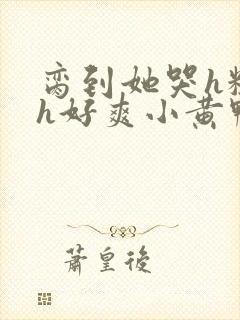 脔到她哭h粗
h好爽小黄鸭
萧皇後